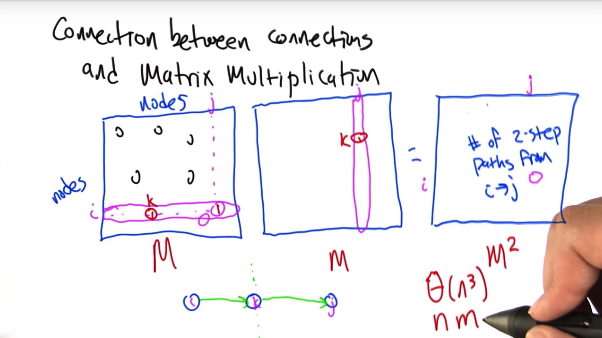 Connection between connections
and Matrix Multiplication
nodes j
nodes
i
k
1
1
0
M
j
k
1
M
=
j
i
# of 2-step
paths from
i→j
0
M²
Θ(n³)
nm
i
k
j